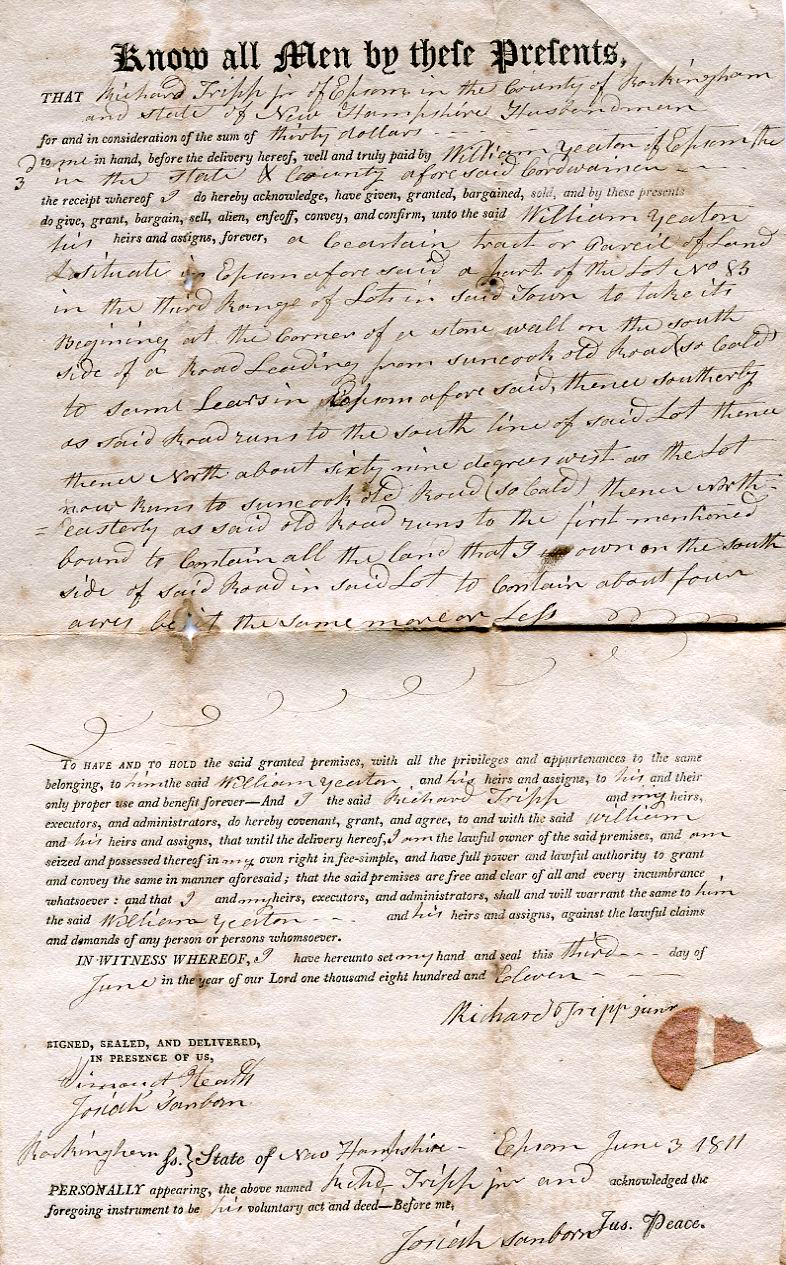 Know all Men by these Presents,
THAT Richard Tripp jr of Epsom in the County of Rockingham
and state of New Hampshire Husbandman
for and in consideration of the sum of thirty dollars
to me in hand, before the delivery hereof, well and truly paid by William Yeaton of Epsom
in the State & County afore said Cordwainer
the receipt whereof I do hereby acknowledge, have given, granted, bargained, sold, and by these presents
do give, grant, bargain, sell, alien, enfeoff, convey, and confirm, unto the said William Yeaton
his heirs and assigns, forever, a Ceartain tract or Parcil of Land
situate in Epsom afore said a part of the Lot No 83
in the third Range of Lots in said Town to take its
Begining at the Corner of a stone wall on the south
side of a Road Leading from suncook old Road (so Cald)
to saml Lears in Epsom afore said, thence southerly
as said Road runs to the south line of said Lot thence
thence North about sixty nine degrees west as the Lot
now Runs to suncook old Road (so Cald) thence North=
=easterly as said old Road runs to the first mentioned
bound to Contain all the land that I own on the south
side of said Road in said Lot to Contain about four
acres be it the same more or Less
TO HAVE AND TO HOLD the said granted premises, with all the privileges and appurtenances to the same
belonging, to him the said William Yeaton and his heirs and assigns, to his and their
only proper use and benefit forever—And I the said Richard Tripp and my heirs,
executors, and administrators, do hereby covenant, grant, and agree, to and with the said William
and his heirs and assigns, that until the delivery hereof, I am the lawful owner of the said premises, and am
seized and possessed thereof in my own right in fee-simple, and have full power and lawful authority to grant
and convey the same in manner aforesaid; that the said premises are free and clear of all and every incumbrance
whatsoever: and that I and my heirs, executors, and administrators, shall and will warrant the same to him
the said William Yeaton - - - and his heirs and assigns, against the lawful claims
and demands of any person or persons whomsoever.
IN WITNESS WHEREOF, I have hereunto set my hand and seal this third - - - day of
June in the year of our Lord one thousand eight hundred and Eleven -
Richard Tripp junr
SIGNED, SEALED, AND DELIVERED,
IN PRESENCE OF US,
Heath
Josiah Sanborn
Rockingham ss.} State of New Hampshire - Epsom June 3 1811
PERSONALLY appearing, the above named Richd Tripp jnr and acknowledged the
foregoing instrument to be his voluntary act and deed—Before me,
Josiah Sanborn Jus. Peace.